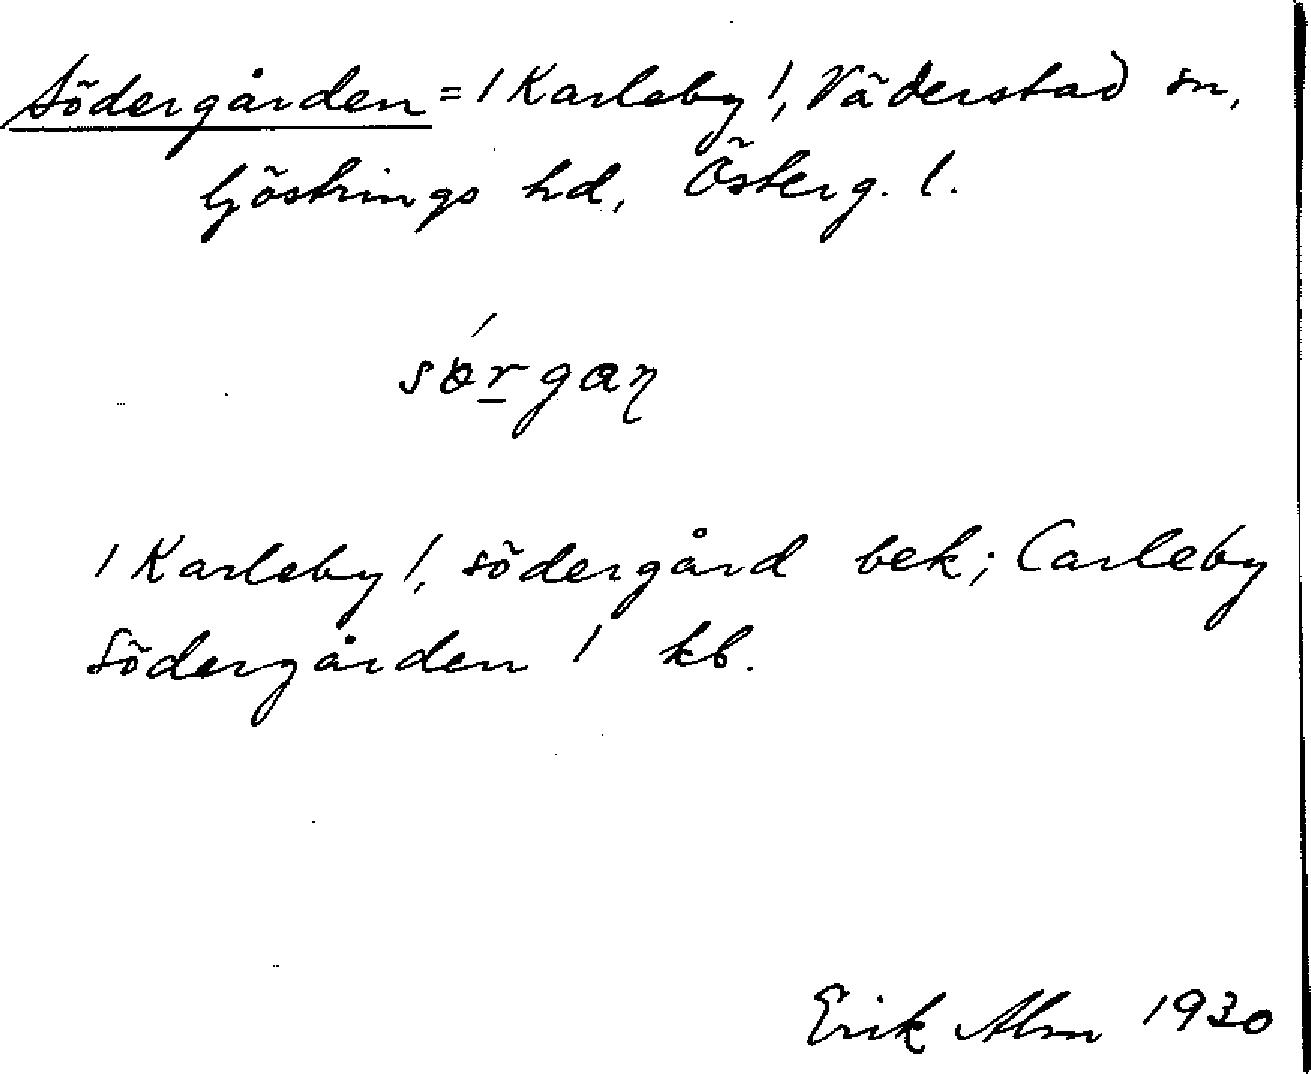 Södergården = / Karleby /, Väderstad sn,
Göstrings hd, Österg. l.
sǿrgaɳ
/ Karleby /, södergård bek; Carleby
Södergården / kb.
Erik Alm 1930